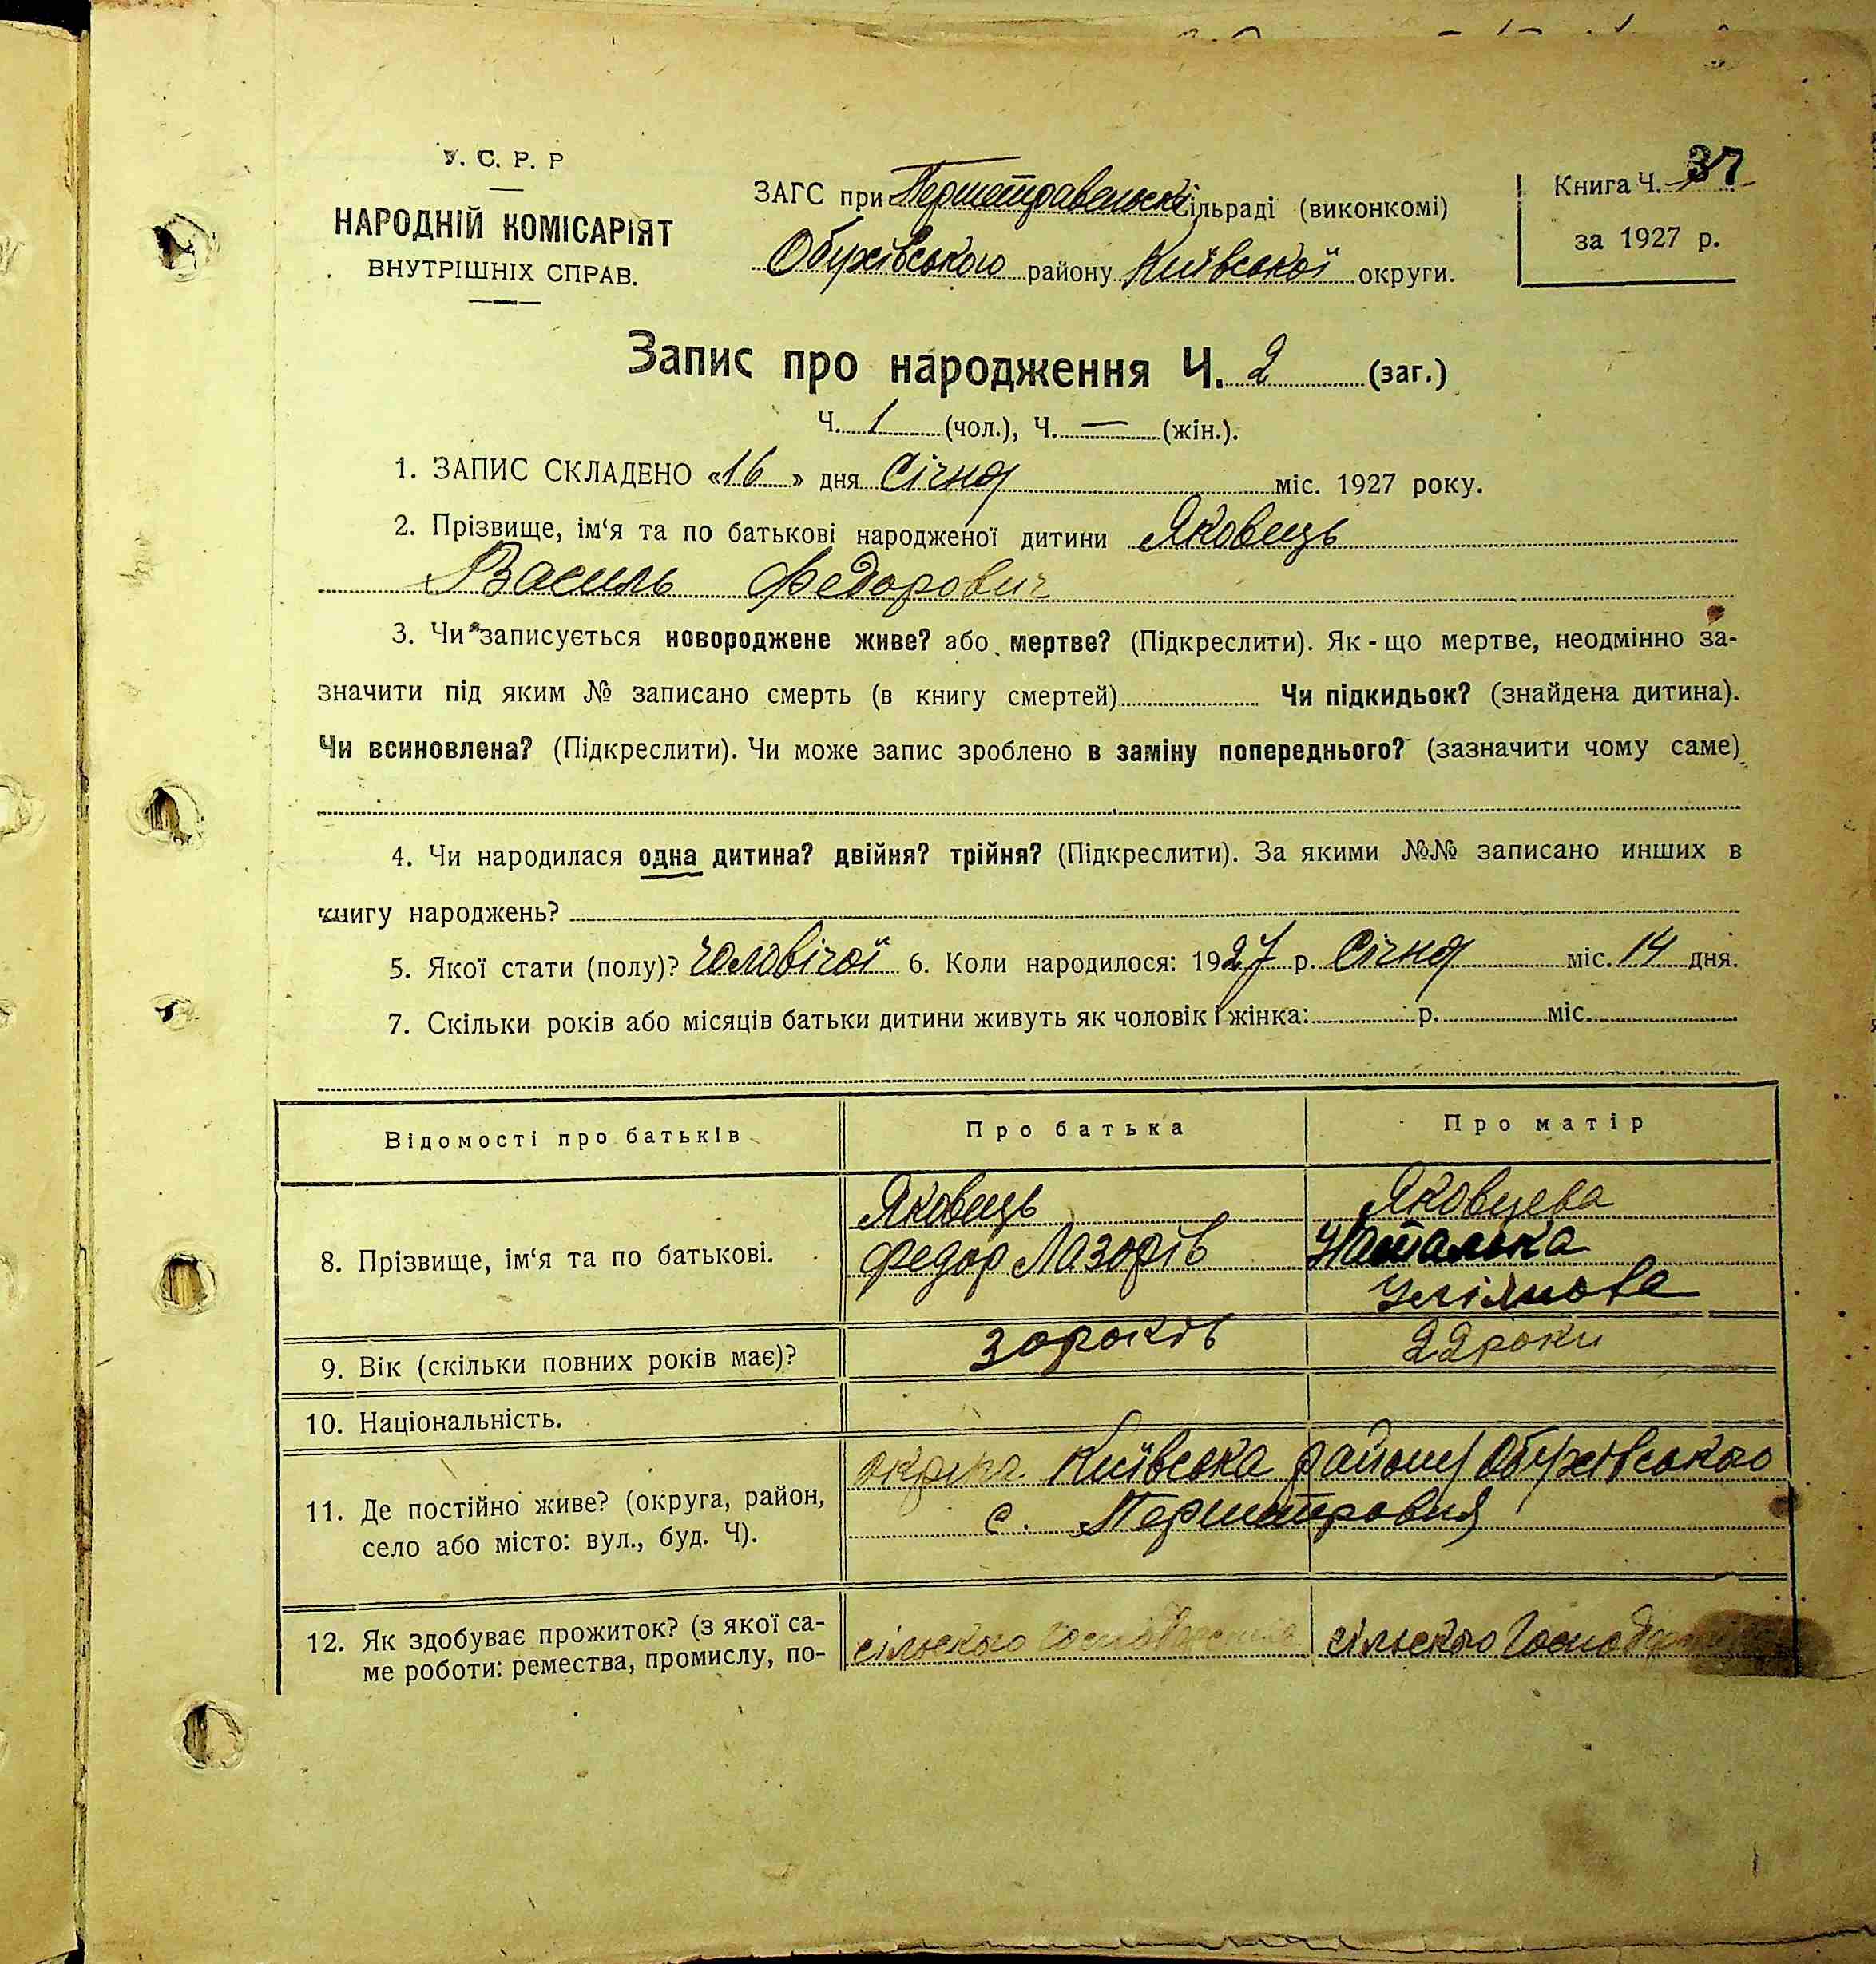 У. С. Р. Р
НАРОДНІЙ КОМІСАРІЯТ
ВНУТРІШНІХ СПРАВ.
ЗАГС при Першетравенскі сільраді (виконкомі)
Обухівського району Київської округи.
Книга Ч. 37
за 1927 р.
Запис про народження Ч. 2 (заг.)
Ч. 1 (чол.), Ч. — (жін.).
1. ЗАПИС СКЛАДЕНО «16» дня Січня міс. 1927 року.
2. Прізвище, ім‘я та по батькові народженої дитини Яковець
Василь Федорович
3. Чи записується новороджене живе? або мертве? (Підкреслити). Як-що мертве, неодмінно за-
значити під яким № записано смерть (в книгу смертей) Чи підкидьок? (знайдена дитина).
Чи всиновлена? (Підкреслити). Чи може запис зроблено в заміну попереднього? (зазначити чому саме)
4. Чи народилася одна дитина? двійня? трійня? (Підкреслити). За якими №№ записано инших в
книгу народжень?
5. Якої стати (полу)? Чоловічої 6. Коли народилося: 1927 р. Січня міс. 14 дня.
7. Скільки років або місяців батьки дитини живуть як чоловік і жінка: р. міс.
Відомості про батьків
Про батька
Про матір
8. Прізвище, ім‘я та по батькові.
Яковець
Федор Лазорів
Яковцева
Наталка
Улі́янова
9. Вік (скільки повних років має)?
30 років
22 роки
10. Національність.
11. Де постійно живе? (округа, район,
село або місто: вул., буд. Ч).
округа Київська району Обухівського
с. Першетровня
12. Як здобуває прожиток? (з якої са-
ме роботи: ремества, промислу, по-
сільского
сільского